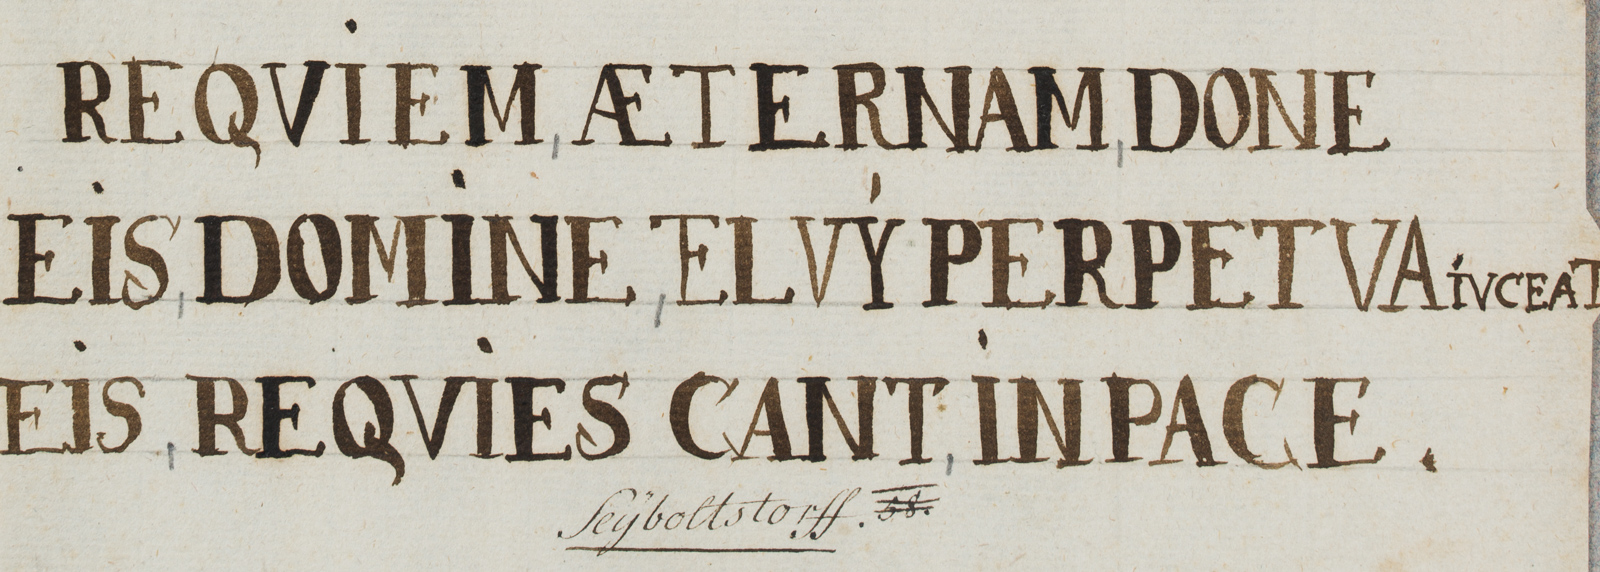 REQVIEM, ÆTERNAM, DONE
EIS, DOMINE, ELVÝ PERPETVA iVCEAT
EIS, REQVIES CANT, IN PACE.
Seÿboltstorff. 58.